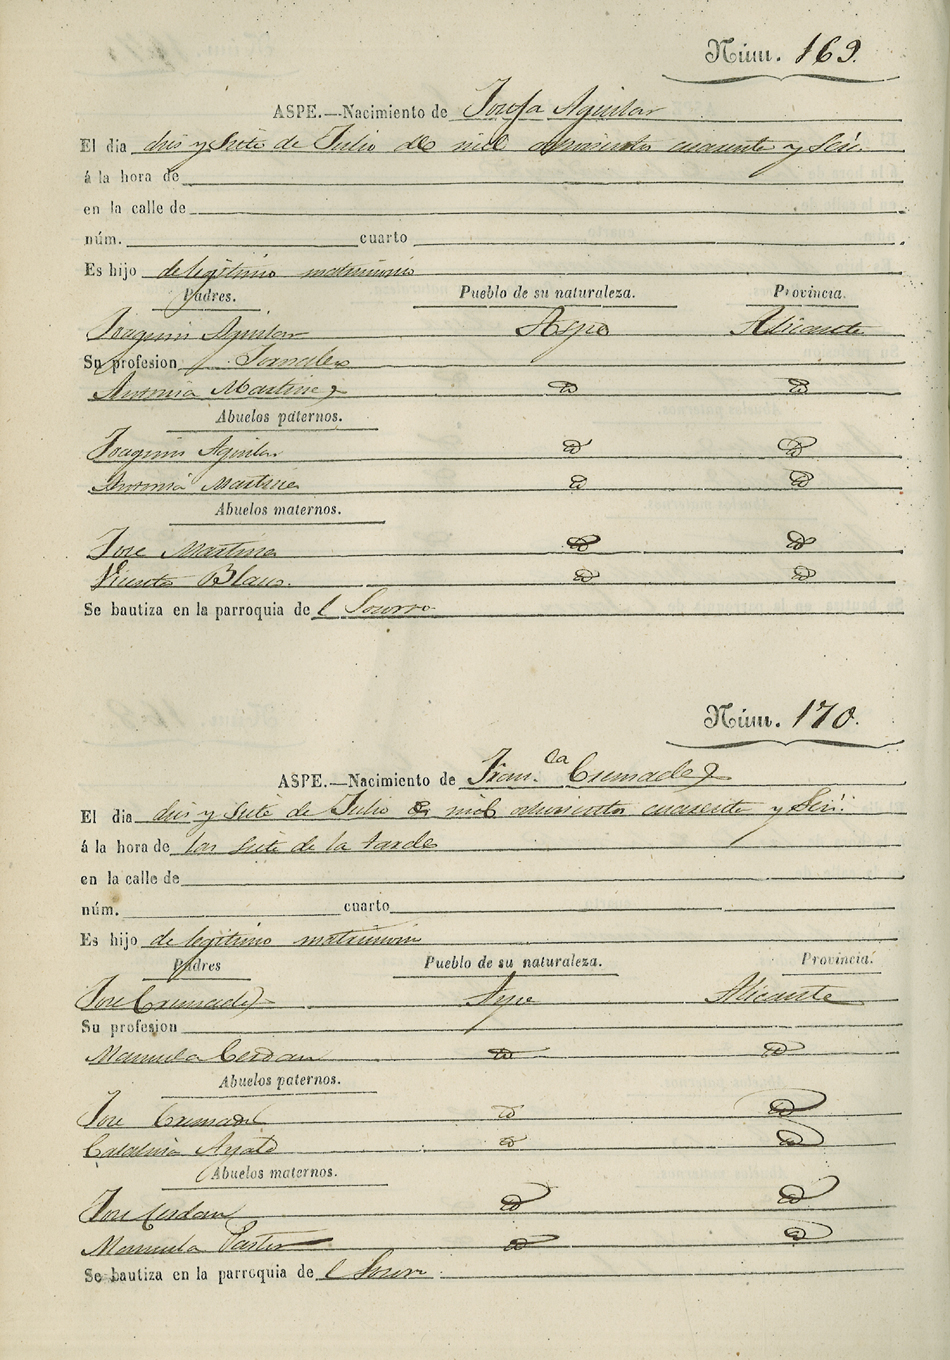 Núm. 169.
ASPE.—Nacimiento de Josefa Aguilar
El dia dies y siete de Julio de mil ochocientos cuarenta y seis.
á la hora de
en la calle de
núm. cuarto
Es hijo de legitimo matrimonio
Padres. Pueblo de su naturaleza. Provincia.
Joaquin Aguilar Aspe Alicante
Su profesion Jornalero
Antonia Martinez id id
Abuelos paternos.
Joaquin Aguilar id id
Antonia Martinez id id
Abuelos maternos.
Jose Martinez id id
Vicenta id id
Se bautiza en la parroquia de l Socorro
Núm. 170.
ASPE.—Nacimiento de Fran.ca Cremades
El dia dies y siete de Julio de mil ochocientos cuarenta y seis.
á la hora de las siete de la tarde
en la calle de
núm. cuarto
Es hijo de legitimo matrimonio
Padres Pueblo de su naturaleza. Provincia.
Jose Cremades Aspe Alicante
Su profesion
Manuela Cerdan id id
Abuelos paternos.
Jose Cremades id id
Catalina id id
Abuelos maternos.
Jose Cerdan id id
Manuela Pastor id id
Se bautiza en la parroquia de l